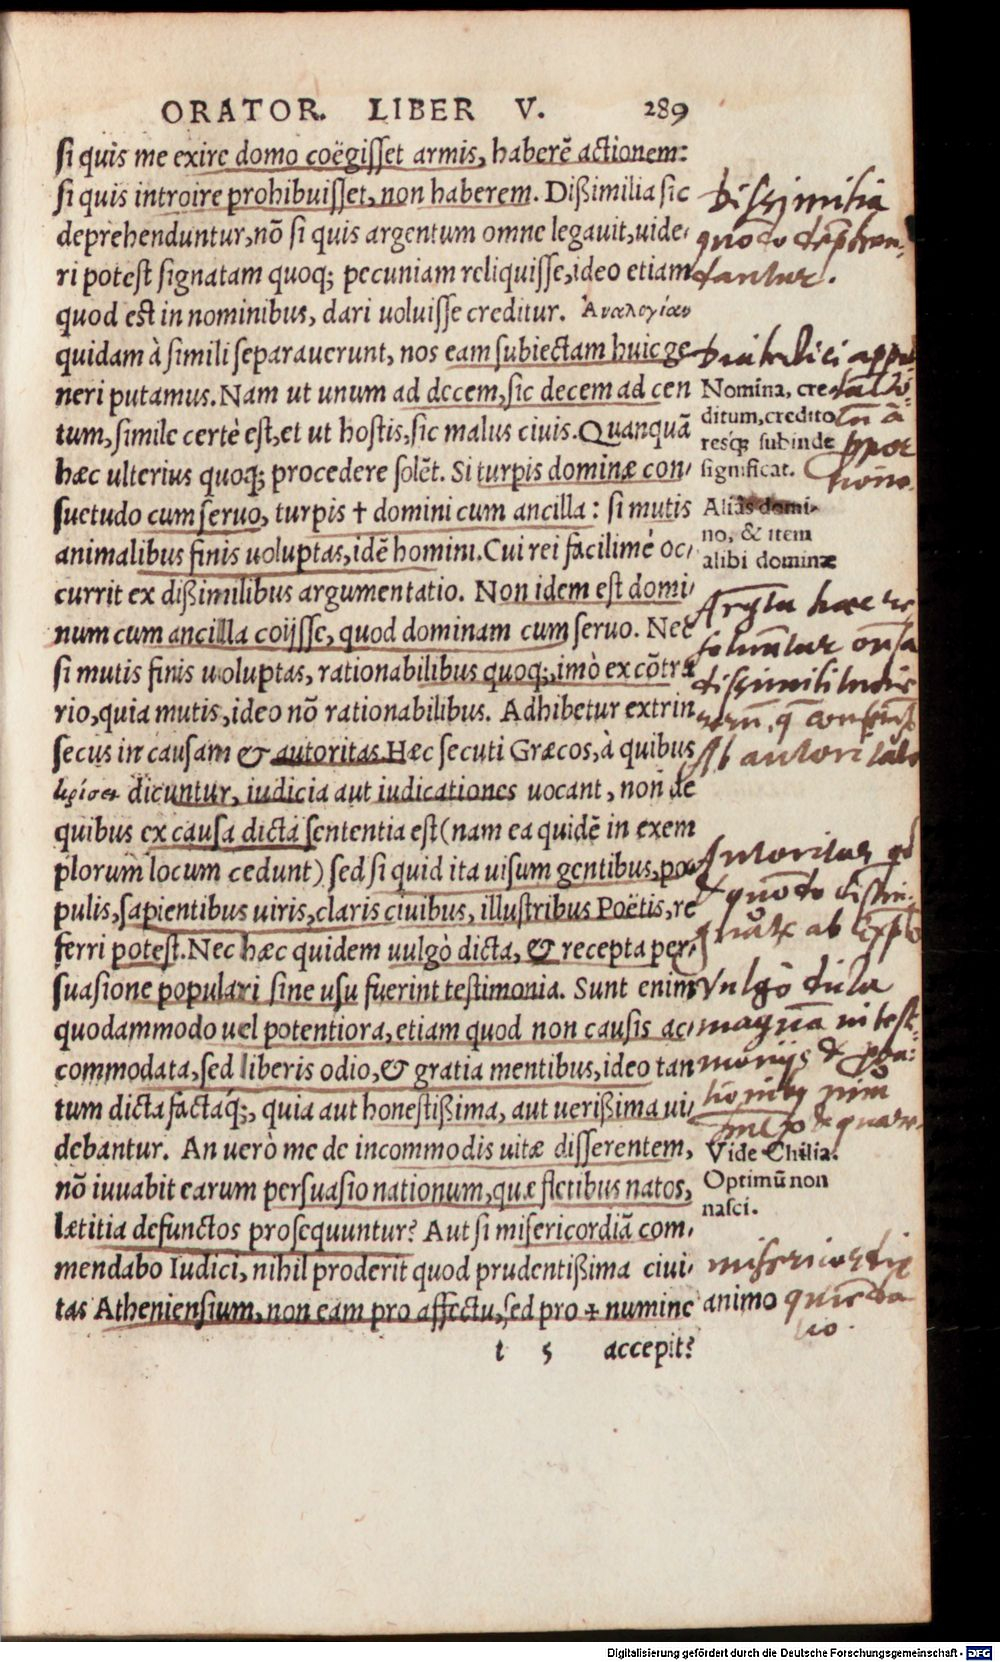 ORATOR. LIBER V. 289
si quis me exire domo coëgisset armis, haberē actionem:
si quis introire prohibuisset, non haberem. Dißimilia sic
deprehenduntur, nō si quis argentum omne legauit, uide-
ri potest signatam quoq; pecuniam reliquisse, ideo etiam
quod est in nominibus, dari uoluisse creditur. Ἀναλογίαν
quidam à simili separauerunt, nos eam subiectam huic ge
neri putamus. Nam ut unum ad decem, sic decem ad cen
tum, simile certè est, et ut hostis, sic malus ciuis. Quanquā
hæc ulterius quoq; procedere solēt. Si turpis dominæ con-
suetudo cum seruo, turpis † domini cum ancilla: si mutis
animalibus finis uoluptas, idē homini. Cui rei facilimè oc-
currit ex dißimilibus argumentatio. Non idem est domi-
num cum ancilla coijsse, quod dominam cum seruo. Nec
si mutis finis uoluptas, rationabilibus quoq;, imò ex cōtra
rio, quia mutis, ideo nō rationabilibus. Adhibetur extrin
secus in causam & autoritas. Hæc secuti Græcos, à quibus
κρίσεις dicuntur, iudicia aut iudicationes uocant, non de
quibus ex causa dicta sententia est (nam ea quidē in exem
plorum locum cedunt) sed si quid ita uisum gentibus, po-
pulis, sapientibus uiris, claris ciuibus, illustribus Poëtis, re
ferri potest. Nec hæc quidem uulgò dicta, & recepta per-
suasione populari sine usu fuerint testimonia. Sunt enim
quodammodo uel potentiora, etiam quod non causis ac-
commodata, sed liberis odio, & gratia mentibus, ideo tan
tum dicta factaq́;, quia aut honestißima, aut uerißima ui-
debantur. An uerò me de incommodis uitæ disserentem,
nō iuuabit earum persuasio nationum, quæ fletibus natos,
lætitia defunctos prosequuntur? Aut si misericordiā com-
mendabo Iudici, nihil proderit quod prudentißima ciui-
tas Atheniensium, non eam pro affectu, sed pro ✝ numine
t 5 accepit?
Dissimilia
quo do depræhen-
dantur.
Dialectici
Nomina, cre-
ditum, credito
resq́; subinde
significat.
Aliâs domi-
no, & item
alibi dominæ
hæc
dissimilitudine
Ab autoritate
Autoritas
& quo do
ab
Vulgò dicta
Vide Chilia.
Optimū non
nasci.
misericordia
animo